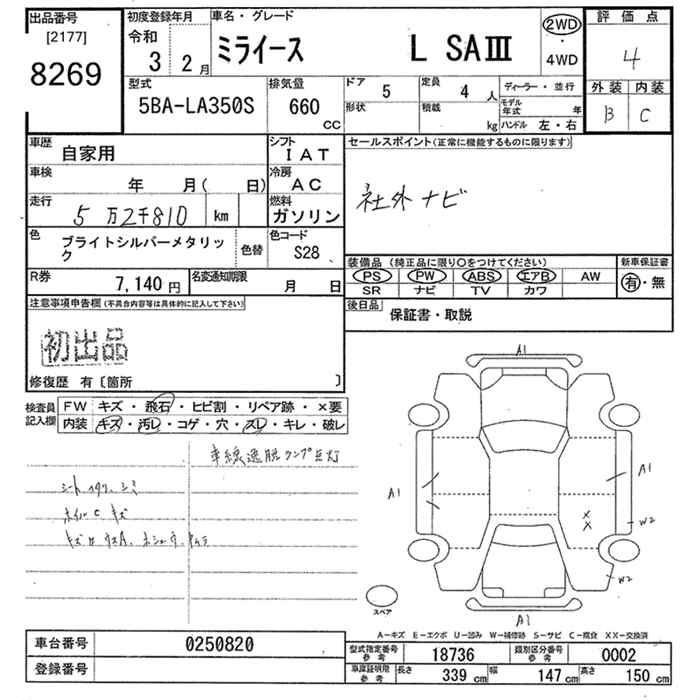 出品番号
[2177]
8269
初度登録年月
令和
3 2月
車名・グレード
ミライース L SAⅢ
2WD
・
4WD
評価点
4
外装 内装
B C
型式
5BA-LA350S
排気量
660
cc
ドア 5
形状
定員 4 人
積載 kg
ディーラー・並行
モデル年式 年
ハンドル 左・右
車歴 自家用
シフト IAT
車検 年 月( 日)
冷房 AC
走行 5万2千810 km
燃料 ガソリン
色 ブライトシルバーメタリック
色替
色コード S28
R券 7,140円
名変通知期限 月 日
セールスポイント(正常に機能するものに限ります)
社外ナビ
装備品(純正品に限り○をつけてください)
PS PW ABS エアB AW
SR ナビ TV カワ
新車保証書
有・無
後日品 保証書・取説
注意事項申告欄(不具合内容等は具体的に記入して下さい)
初出品
修復歴 有〔箇所 〕
検査員記入欄
FW キズ・飛石・ヒビ割・リペア跡・×要
内装 キズ・汚レ・コゲ・穴・スレ・キレ・破レ
車線逸脱ランプ点灯
シート スリ、シミ
ホイルC キズ
A1
A1
A1
A1
×
×
W2
W2
スペア
A－キズ E－エクボ U－凹み W－補修跡 S－サビ C－腐食 XX－交換済
車台番号 0250820
登録番号
型式指定番号 参考 18736
類別区分番号 参考 0002
車庫証明用 参考 長さ 339 cm 幅 147 cm 高さ 150 cm